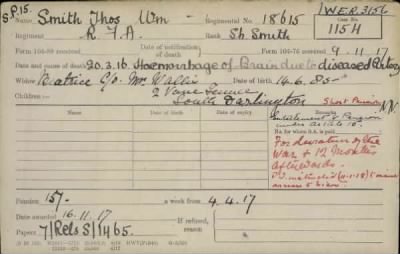 S.P.15.
1WER3156
Smith Thos Wm — Regimental No. 18615 Case No. 115H
Regiment R F A. Rank Sh. Smith
Form 104-88 received Date of notification of death Form 104-76 received 9.11.17
Date and cause of death 20.3.16. Haemorrhage of Brain due to diseased Artery
Widow Beatrice C/o Mr Wallis Date of birth 14.6.85
Children:— 2 Vane Terrace
South Darlington
Short Pension N.N.
Date of birth Date of expiry Date of birth Date of expiry Remarks
Entitlement of Pension
under Article 10.
No. for whom S.A. is paid
For duration of the
War & 12 months
afterwards.
Pension: 15/- a week from 4.4.17
Date awarded 16.11.17 If refused,
reason
Papers 7/Rels S/1465.